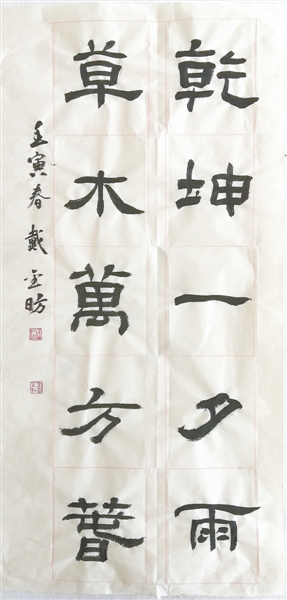 乾坤一夕雨
草木萬方萅
壬寅春戴金昉